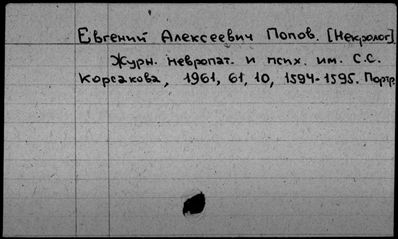 Евгений Алексеевич Попов. [Некролог]
Журн. невропат. и псих. им. С.С.
Корсакова, 1961, 61, 10, 1594-1595. Портр